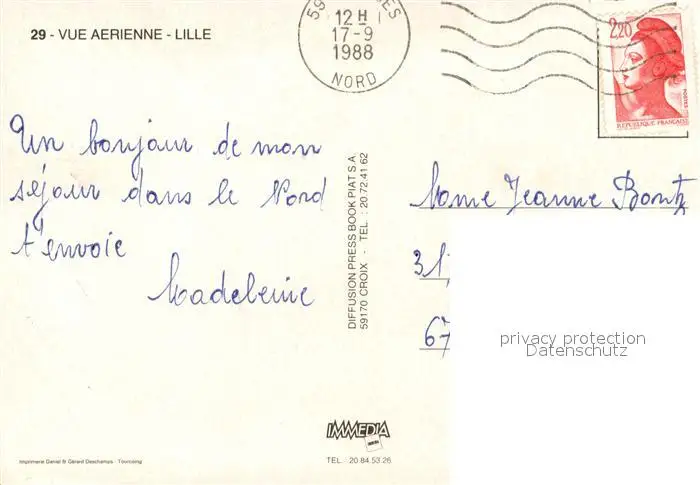 29 - VUE AERIENNE - LILLE
12 H
17-9
1988
NORD
2,20
POSTES
REPUBLIQUE FRANÇAISE
Un bonjour de mon
séjour dans le Nord
t'envoie
Madeleine
DIFFUSION PRESS BOOK PIAT S.A.
59170 CROIX - TEL : 20 72.41 62
Mome Jeanne Bontz
31,
67
privacy protection
Datenschutz
IMMEDIA
TEL. 20 84.53 26
Imprimerie Daniel & Gérard Deschamps - Tourcoing